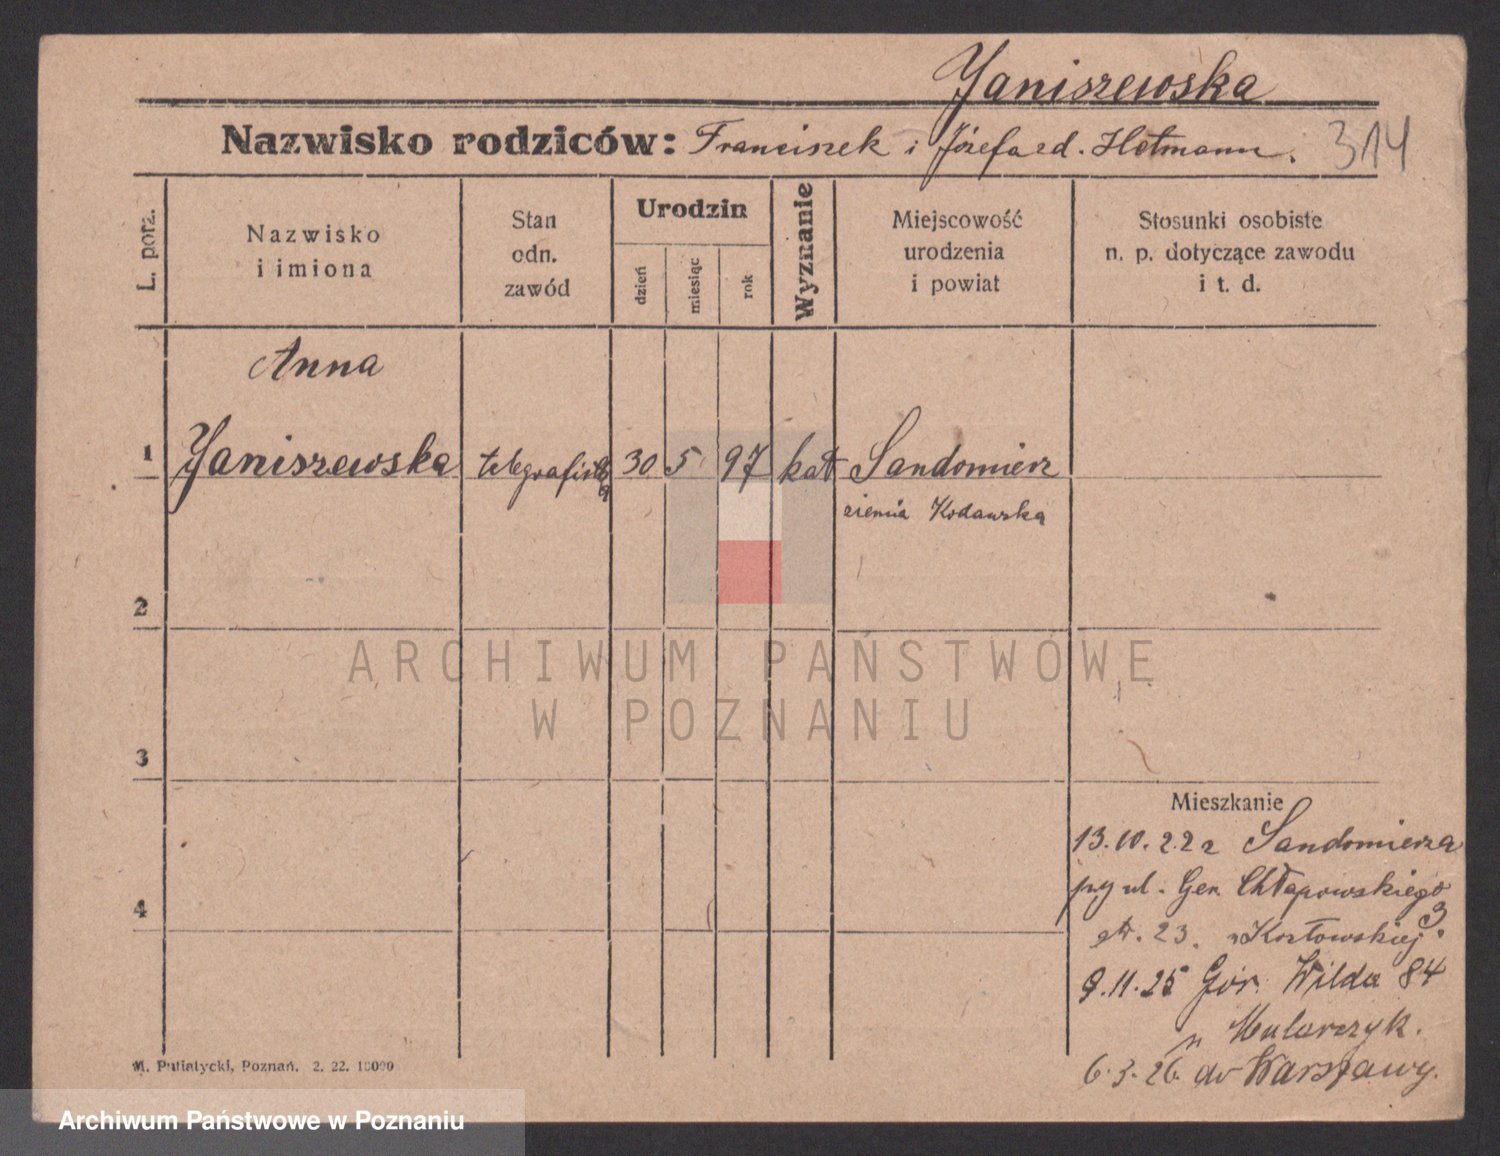 Janiszewska
Nazwisko rodziców: Franciszek i Józefa zd. Hetmann. 314
L. porz.
Nazwisko
i imiona
Stan
odn.
zawód
Urodzin
dzień
miesiąc
rok
Wyznanie
Miejscowość
urodzenia
i powiat
Stosunki osobiste
n. p. dotyczące zawodu
i t. d.
Anna
1 Janiszewska telegrafistka 30 5 97 kat Sandomierz
ziemia
2
3
4
Mieszkanie
13.10.22 z Sandomierza
ul. Gen. Chłapowskiego
23. Kozłowskiej
9.11.25 Gór. Wilda 84
Mularczyk.
6.3.26 do Warszawy.
M. Putiatycki, Poznań. 2. 22. 10000
ARCHIWUM PAŃSTWOWE
W POZNANIU
Archiwum Państwowe w Poznaniu